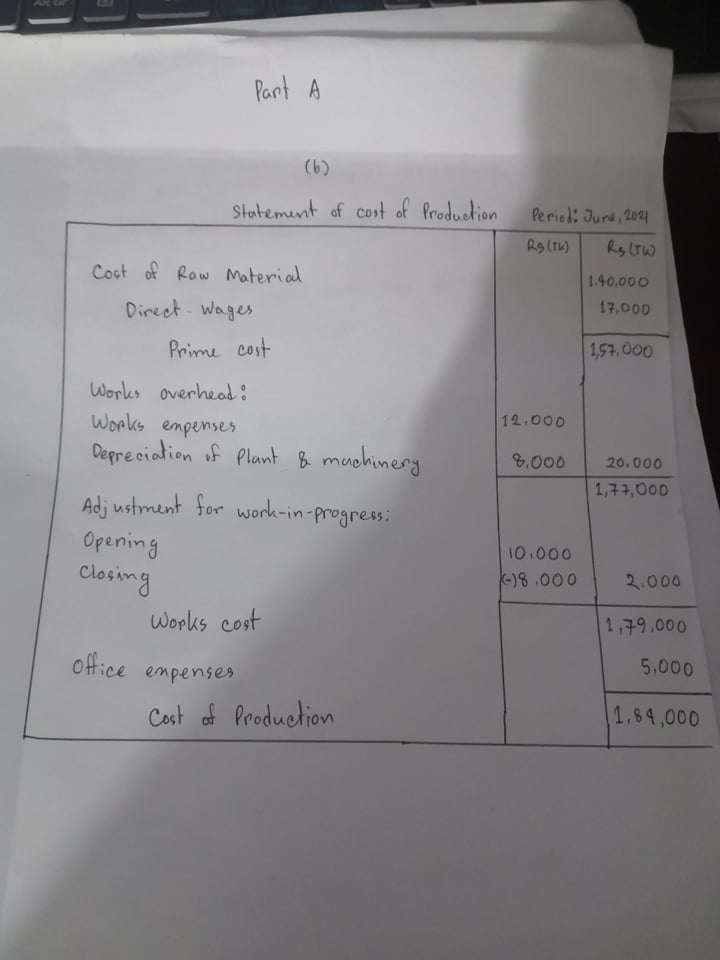 Part A
(b)
Statement of cost of Production Period: June, 2021
Rs (Tk) Rs (Tk)
Cost of Raw Material 1.40,000
Direct Wages 17,000
Prime cost 1,57,000
Works overhead:
Works expenses 12,000
Depreciation of Plant & machinery 8,000 20,000
1,77,000
Adjustment for work-in-progress:
Opening 10,000
Closing (-)8,000 2,000
Works cost 1,79,000
Office expenses 5,000
Cost of Production 1,84,000